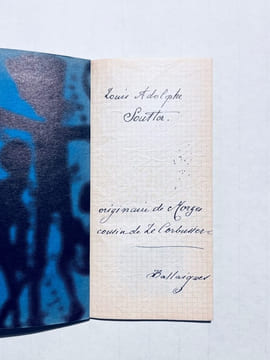 Louis Adolphe
Soutter.
originaire de Morges
cousin de Le Corbusier
Ballaigues